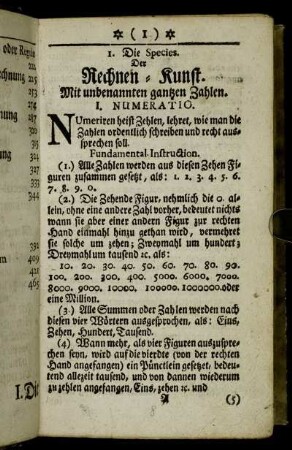 oder Regis
chnung 215
224
231
239
nung 252
314
335
345
349
I. Die
✵ ( 1 ) ✵
1. Die Species.
Der
Rechnen-Kunst.
Mit unbenannten gantzen Zahlen.
I. NUMERATIO.
NUmeriren heist Zehlen, lehret, wie man die
Zahlen ordentlich schreiben und recht aus-
sprechen soll.
Fundamental-Instruction.
(1.) Alle Zahlen werden aus diesen Zehen Fi-
guren zusammen gesetzt, als: 1. 2. 3. 4. 5. 6.
7. 8. 9. 0.
(2.) Die Zehende Figur, nehmlich die 0. al-
lein, ohne eine andere Zahl vorher, bedeutet nichts
wann sie aber einer andern Figur zur rechten
Hand einmahl hinzu gethan wird, vermehret
sie solche um zehen; Zweymahl um hundert;
Dreymahl um tausend ꝛc. als:
10. 20. 30. 40. 50. 60. 70. 80. 90.
100. 200. 300. 400. 5000. 6000. 7000.
8000. 9000. 10000. 100000. 1000000. oder
eine Million.
(3.) Alle Summen oder Zahlen werden nach
diesen vier Wörtern ausgesprochen, als: Eins,
Zehen, Hundert, Tausend.
(4) Wann mehr, als vier Figuren auszuspre-
chen seyn, wird auf die vierdte (von der rechten
Hand angefangen) ein Pünctlein gesetzet, bedeu-
tend allezeit tausend, und von dannen wiederum
zu zehlen angefangen, Eins, zehen ꝛc. und
A (5)